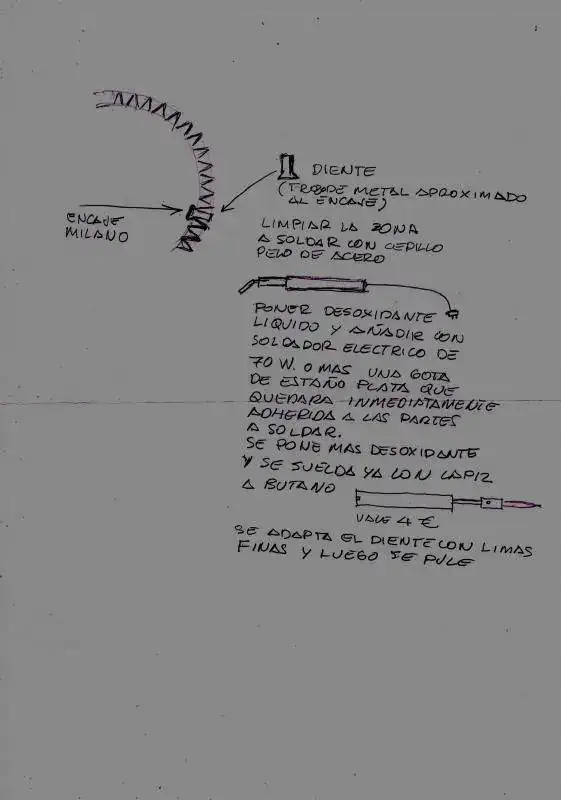 DIENTE
(TROZO DE METAL APROXIMADO
AL ENCAJE)
ENCAJE
MILANO
LIMPIAR LA ZONA
A SOLDAR CON CEPILLO
PELO DE ACERO
PONER DESOXIDANTE
LIQUIDO Y AÑADIR CON
SOLDADOR ELECTRICO DE
70 W. O MAS UNA GOTA
DE ESTAÑO PLATA QUE
QUEDARA INMEDIATAMENTE
ADHERIDA A LAS PARTES
A SOLDAR.
SE PONE MAS DESOXIDANTE
Y SE SUELDA YA CON LAPIZ
A BUTANO
VALE 4 €
SE ADAPTA EL DIENTE CON LIMAS
FINAS Y LUEGO SE PULE